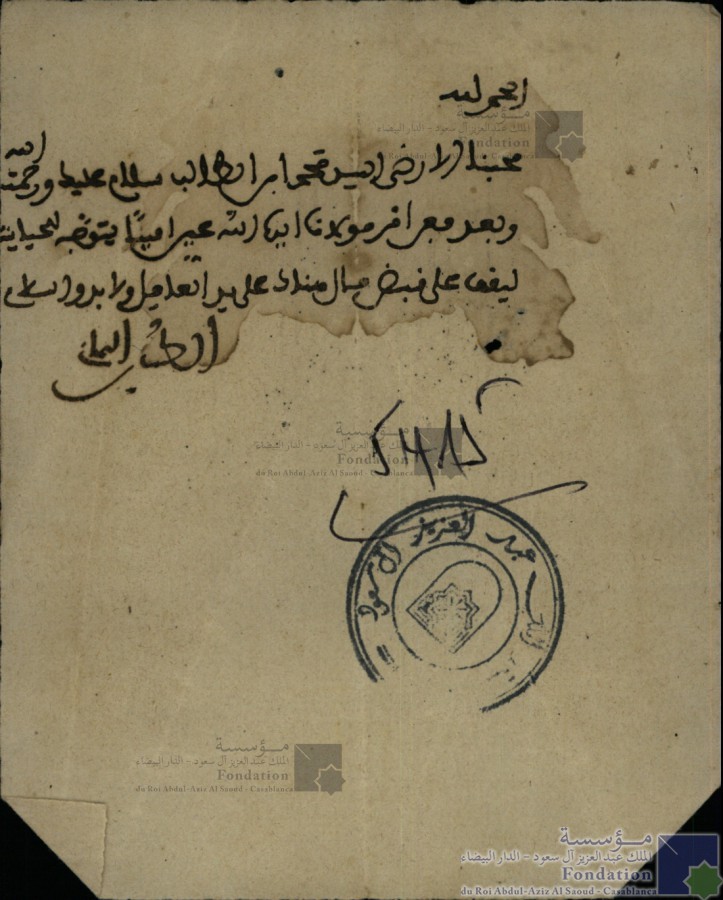 الحمد لله
محبنا الارضى السيد محمد بن الطالب سلام عليك ورحمة الله
وبعد فعن امر مولانا ايده الله عين امينا يتوجه للحياينة
ليقف على قبض مال هنالك على يد العامل ولا بد والسلام
الطيب اليماني
عبد العزيز آل سعود
مؤسسة
الملك عبد العزيز آل سعود - الدار البيضاء
Fondation
du Roi Abdul-Aziz Al Saoud - Casablanca
مؤسسة
الملك عبد العزيز آل سعود - الدار البيضاء
Fondation
du Roi Abdul-Aziz Al Saoud - Casablanca
مؤسسة
الملك عبد العزيز آل سعود - الدار البيضاء
Fondation
du Roi Abdul-Aziz Al Saoud - Casablanca
مؤسسة
الملك عبد العزيز آل سعود - الدار البيضاء
Fondation
du Roi Abdul-Aziz Al Saoud - Casablanca